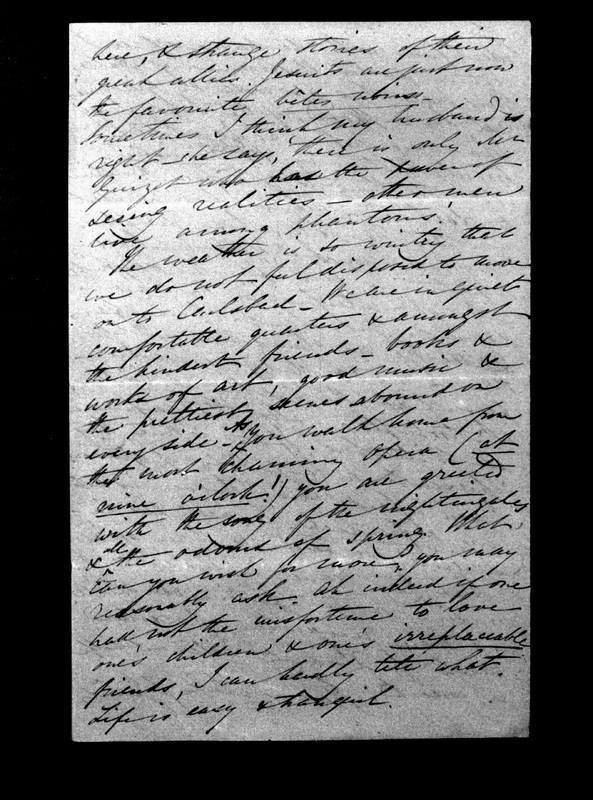 here, & strange stories of their
great allies. Jesuits are just now
the favourite bêtes noires.
Sometimes I think my husband is
right – he says, there is only Mr
Guizot who has the power of
seeing realities – other men
live among phantoms!
The weather is so wintry that
we do not feel disposed to move
on to Carlsbad – We are in quiet
comfortable quarters & amongst
the kindest friends – books &
works of art, good music &
the prettiest scenes abound on
every side – As you walk home from
the most charming opera (at
nine o'clock!) you are greeted
with the song of the nightingales
& all the odours of spring. What
can you wish for more? you may
reasonably ask. Ah indeed if one
had not the misfortune to love
one's children & one's irreplaceable
friends, I can hardly tell what.
Life is easy & tranquil.